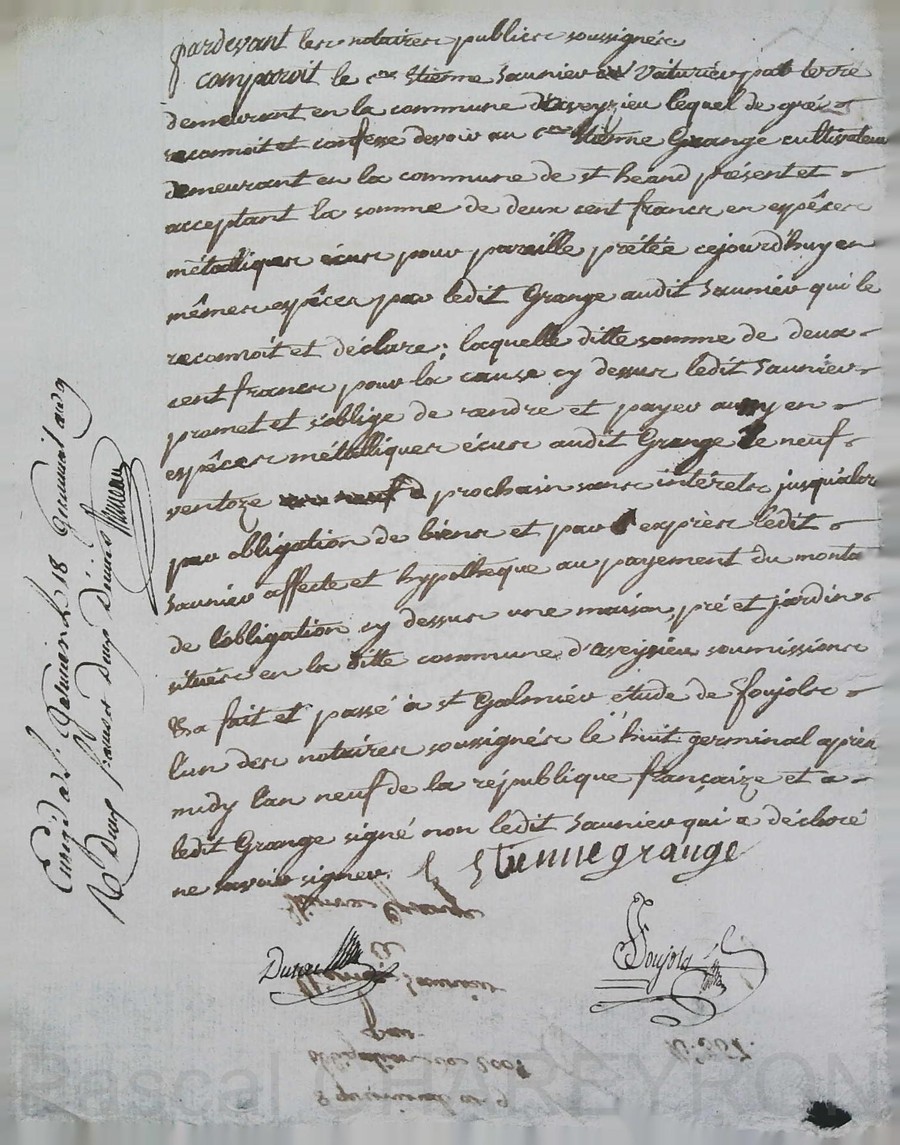 pardevant les notaires publics soussignés
comparoit le cen Etienne Saunier voiturier par terre
demeurant en la commune d'aveyzieu lequel de gré
reconnoit et confesse devoir au cen Etienne Grange cultivateur
demeurant en la commune de st heand présent et
acceptant la somme de deux cent francs en espêces
métalliques écus pour pareille prétée cejourd'huy en
mêmes espêces par ledit Grange audit Saunier qui le
reconnoit et déclare; laquelle ditte somme de deux
cent francs pour la cause cy dessus ledit Saunier
promet et s'oblige de rendre et payer aussy en
espêces métalliques écus audit Grange le neuf
ventoze prochain sans intérets jusqu'alors
par obligation de biens et par exprès ledit
Saunier affecte et hypothèque au payement du montant
de l'obligation cy dessus une maison, pré et jardin
situés en la ditte commune d'aveyzieu soumissions
&a fait et passé à st Galmier étude de Foujols
l'un des notaires soussignés le huit germinal après
midy l'an neuf de la république françaize et a
ledit Grange signé non ledit Saunier qui a déclaré
ne savoir signer. Etienne grange
Foujols
Enregé à st Galmier le 18 Germinal an 9
R Deux francs deux Décimes
Pascal CHAREYRON